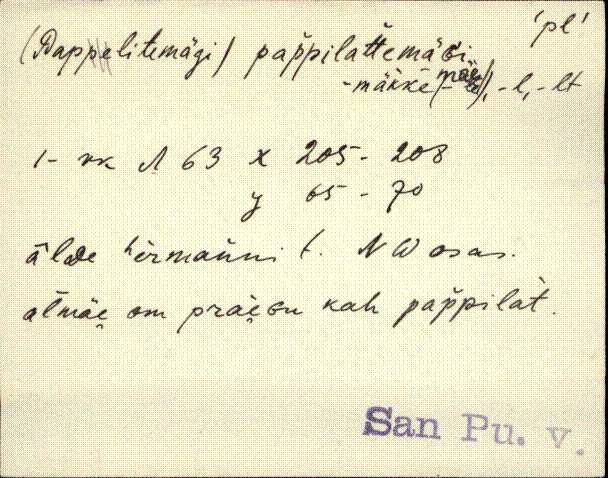 'pl'
(Pappelitemägi) pàppilattemäGi
-mäkke (-mäe), -l, -lt
1- vk N 63 x 205 - 208
y 65 - 70
älDe hèrmanni t. NW osas.
atmäe om präeGu kah pàppilàt.
San Pu. v.